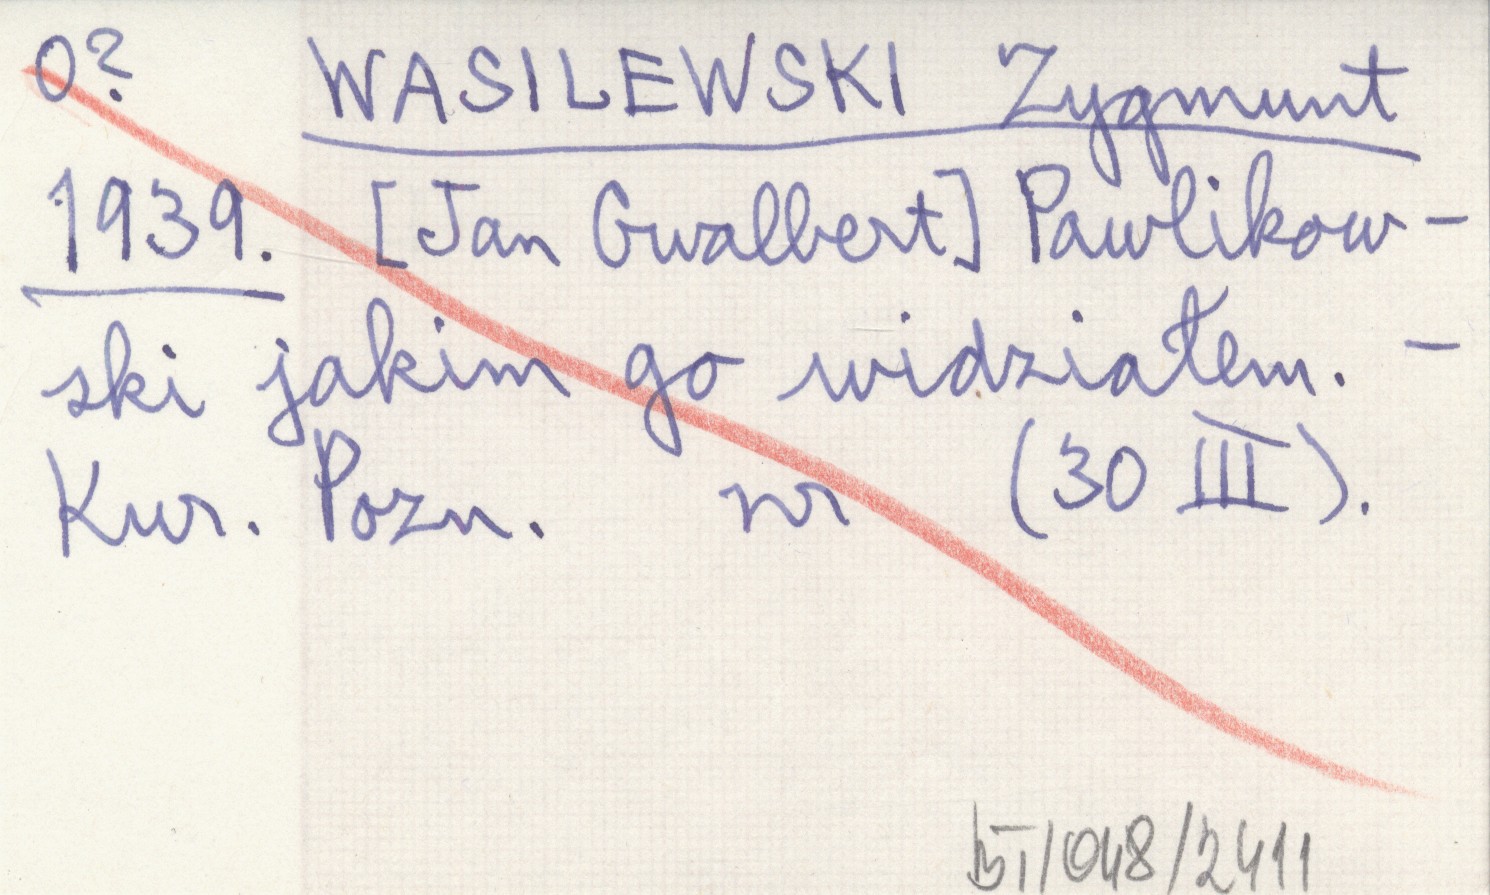 0? WASILEWSKI Zygmunt
1939. [Jan Gwalbert] Pawlikow-
ski jakim go widziałem. -
Kur. Pozn. nr (30 III).
/048/2411